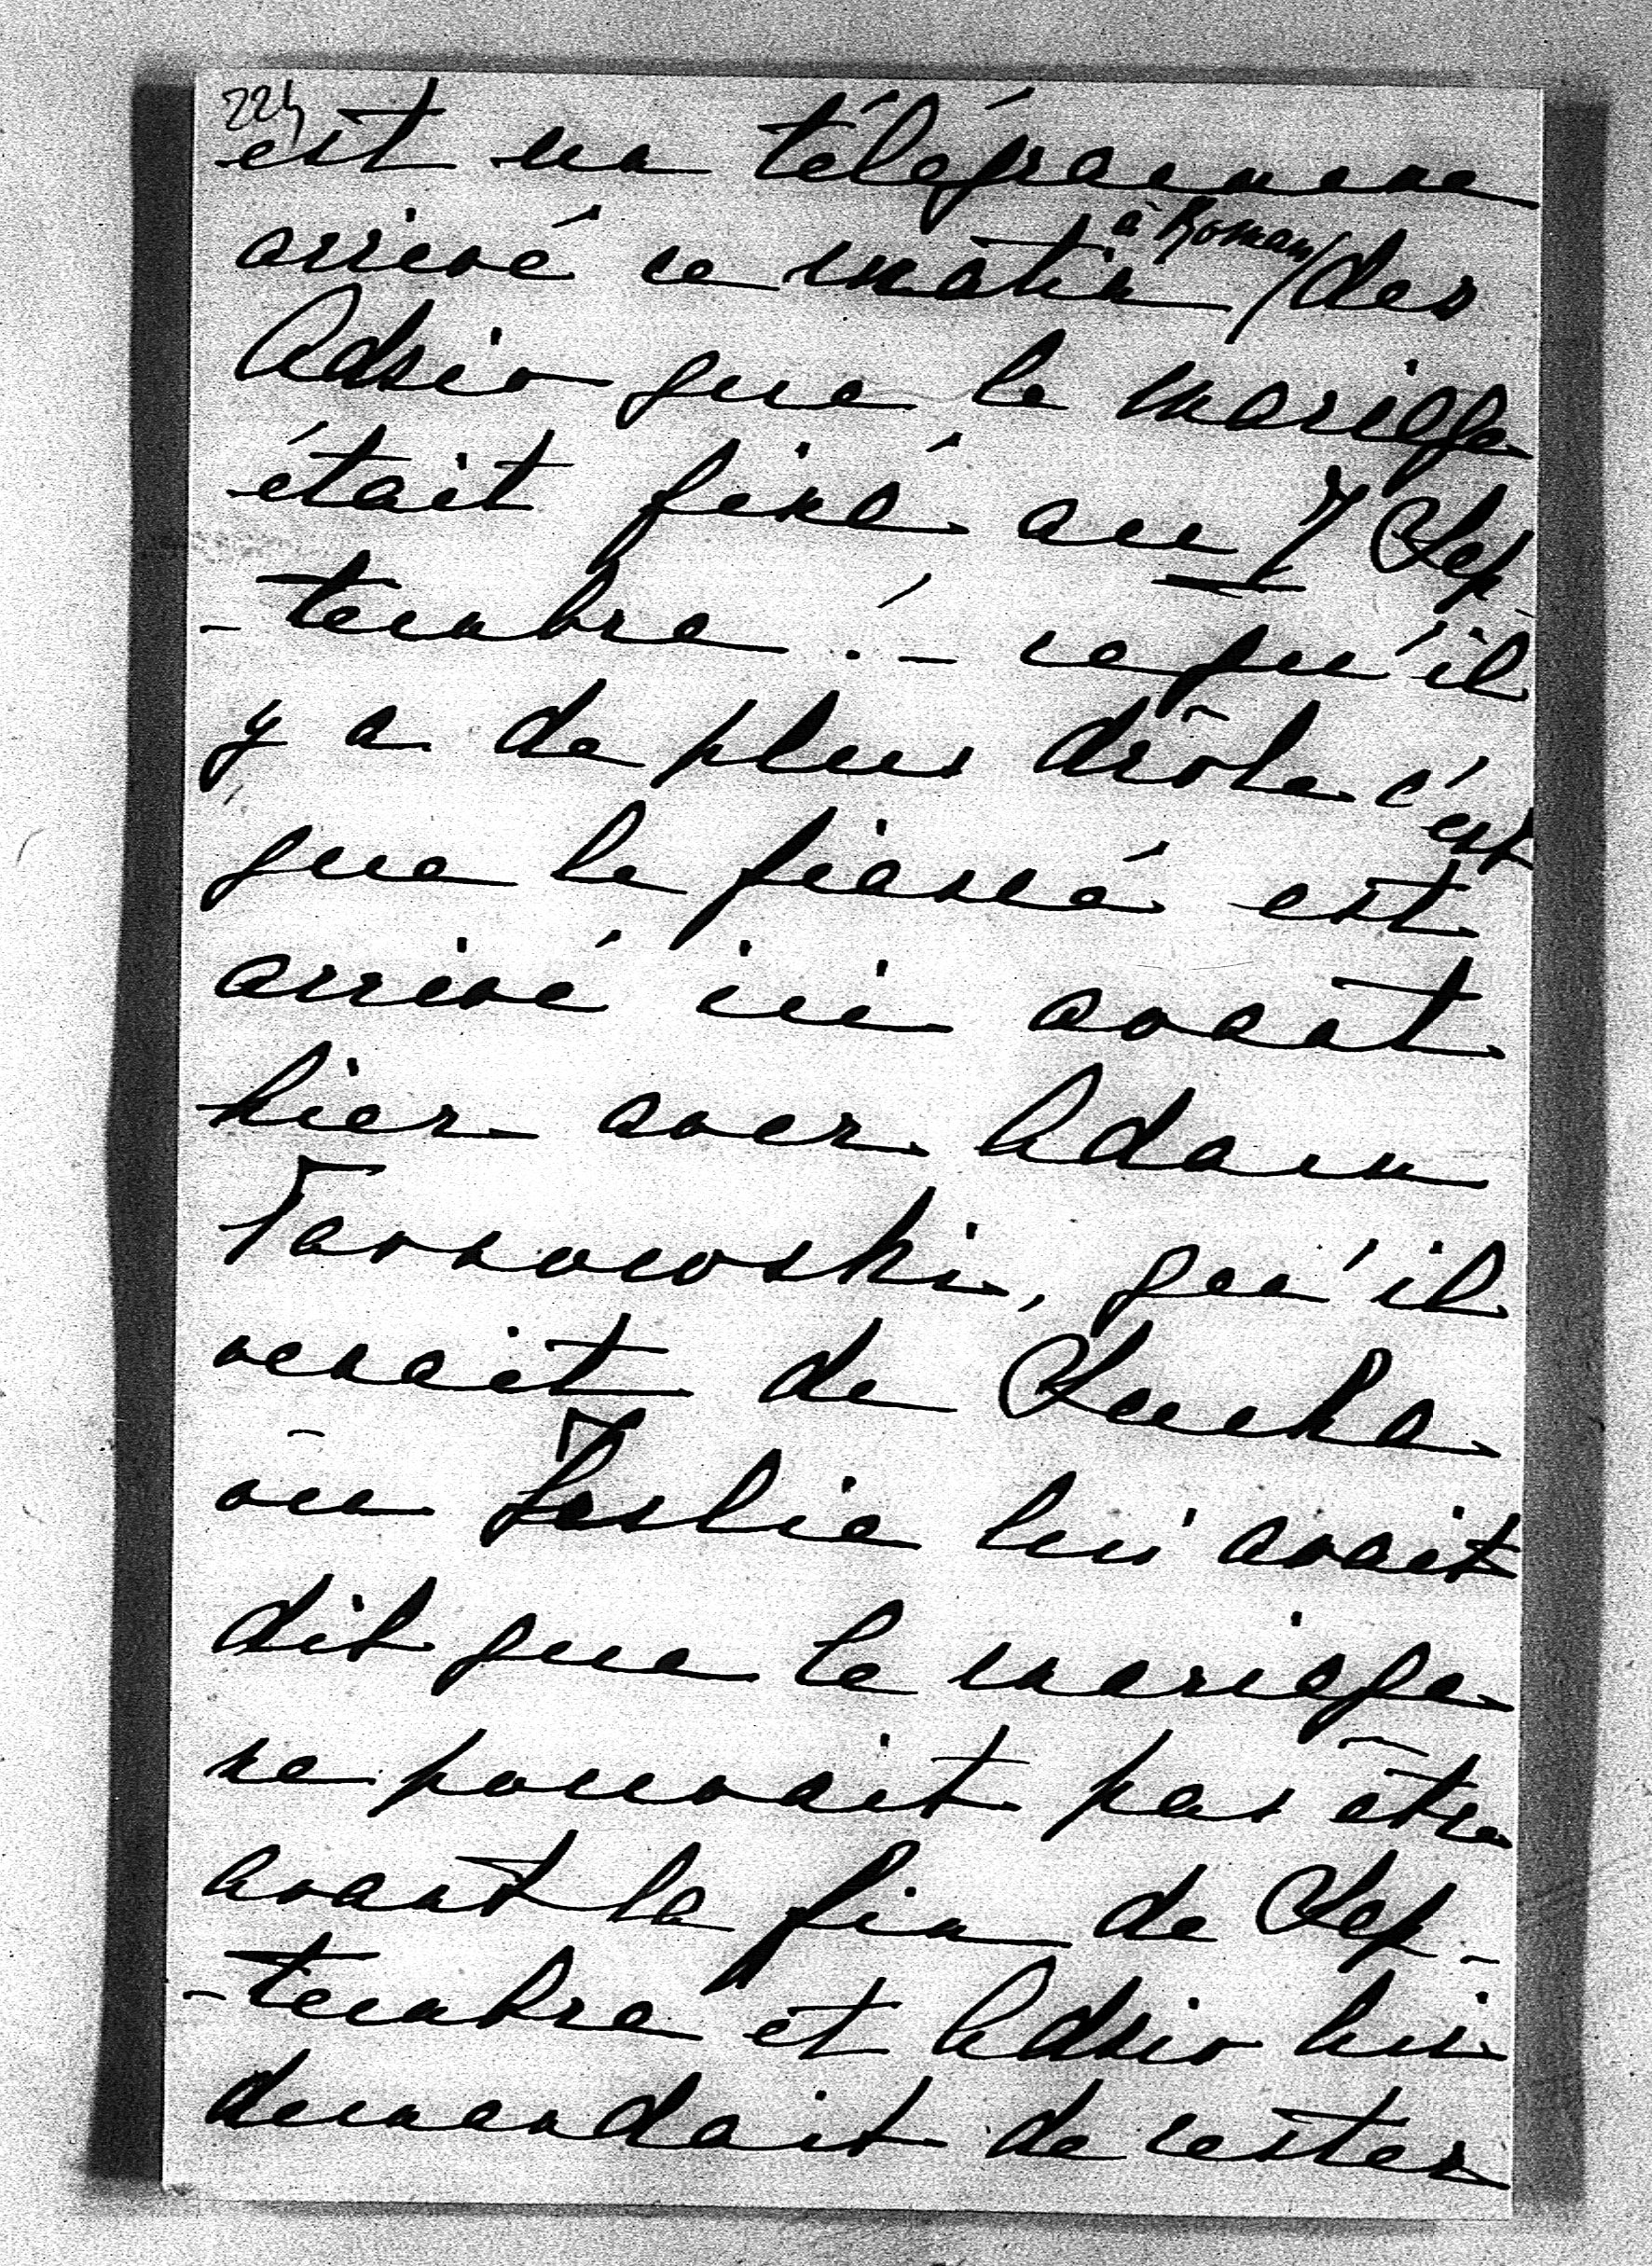 224
est un télégramme
arrivé ce matin à Roman / des
Adzio que le mariage
était fixé au 7 Sep-
-tembre ! – ce qu'il
y a de plus drôle c'est
que le fiancé est
arrivé ici avant
hier avec Adam
Tarnowski, qu'il
venait de Sucha
où Leslie lui avait
dit que le mariage
ne pouvait pas être
avant la fin de Sep-
-tembre et Adzio lui
demandait de rester